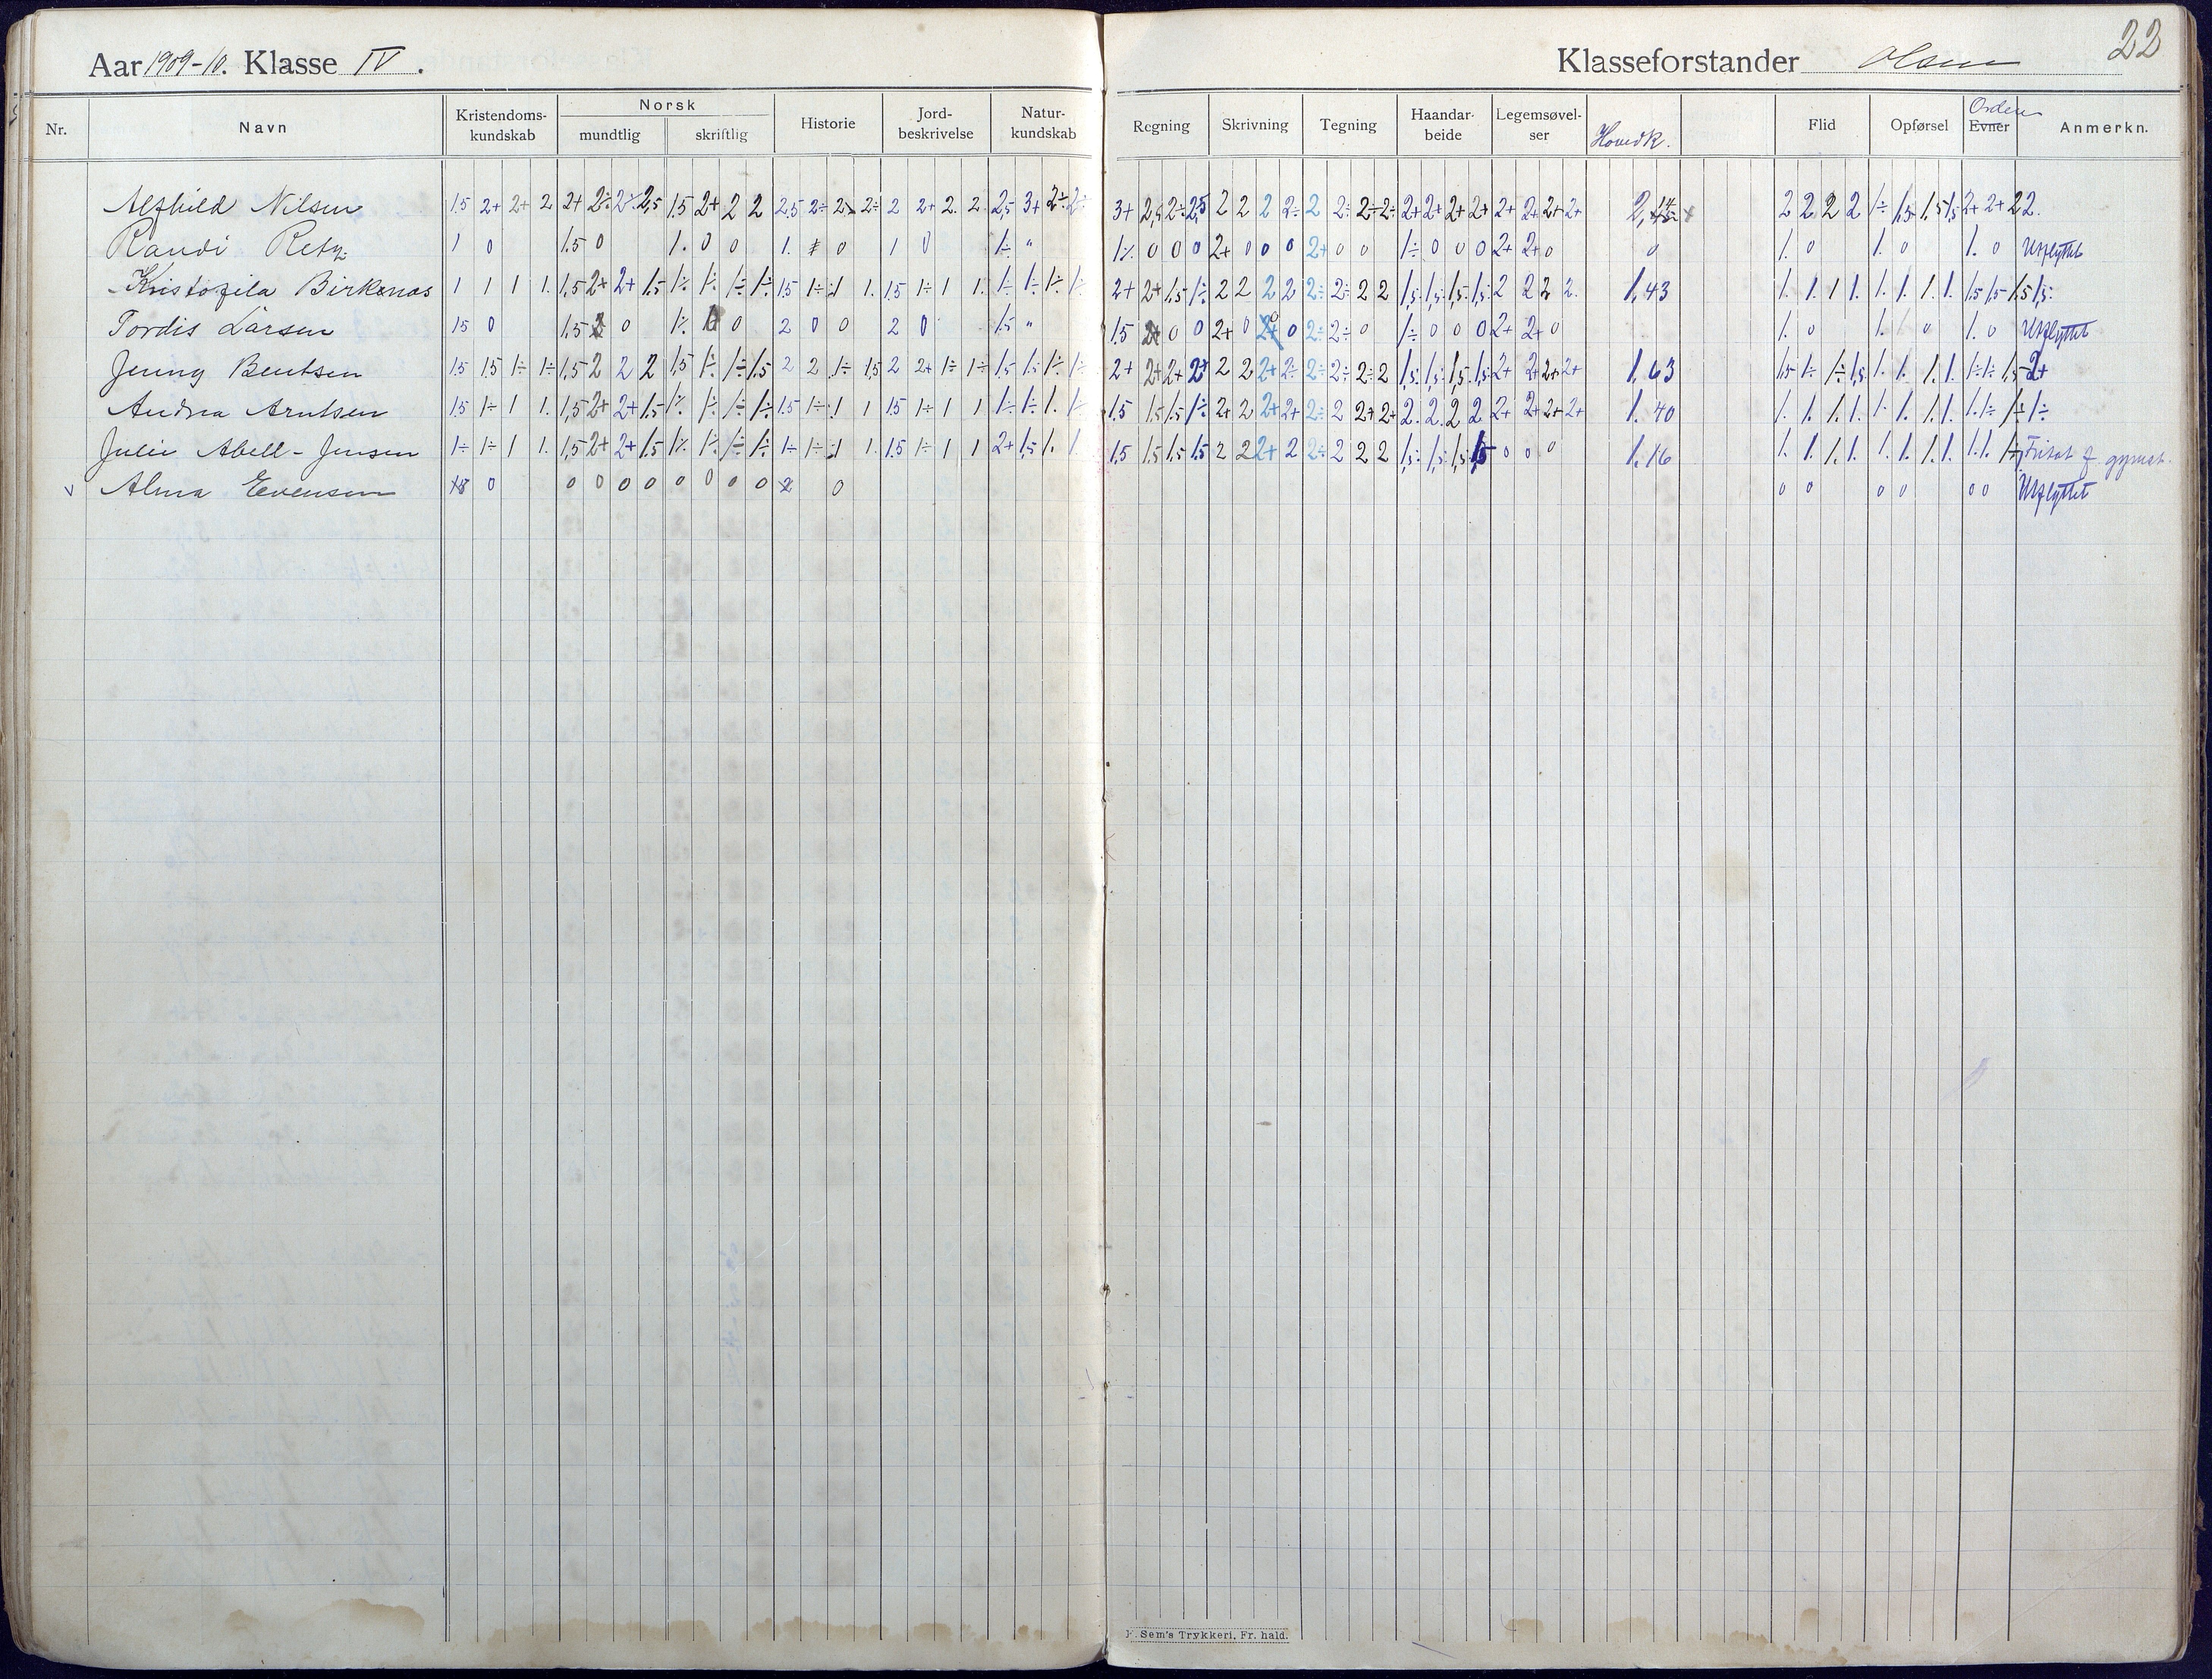 Aar 1909-10. Klasse IV.
Klasseforstander Olsen
22
Nr. Navn Kristendomskundskab Norsk mundtlig skriftlig Historie Jordbeskrivelse Naturkundskab Regning Skrivning Tegning Haandarbeide Legemsøvelser Hovedk. Flid Opførsel Orden Evner Anmerkn.
Alfhild Nilsen 1.5 2+ 2+ 2 2+ 2÷ 2÷ 2,5 1.5 2+ 2 2 2.5 2÷ 2÷ 2÷ 2 2+ 2. 2. 2,5 3+ 2÷ 2÷ 3+ 2,5 2÷ 2,5 2 2 2 2÷ 2 2÷ 2÷ 2÷ 2+ 2+ 2+ 2+ 2+ 2+ 2+ 2+ 2 2 2 2 1÷ 1,5 1,5 1,5 2+ 2+ 2 2.
Randi Retz 1 0 1.5 0 1. 0 0 1. 0 1 0 1÷ " 1÷ 0 0 0 2+ 0 0 0 2+ 0 0 1÷ 0 0 0 2+ 2+ 0 0 1. 0 1. 0 1. 0 Utflyttet
Kristofila Birkenæs 1 1 1 1. 1,5 2+ 2+ 1,5 1÷ 1÷ 1÷ 1÷ 1.5 1÷ 1 1. 1.5 1÷ 1 1. 1÷ 1÷ 1÷ 1÷ 2+ 2+ 1,5 1÷ 2 2 2 2 2÷ 2÷ 2 2 1,5. 1,5. 1,5. 1,5. 2 2 2 2. 1,43 1. 1. 1 1. 1. 1. 1. 1. 1.5 1.5 1,5 1,5.
Tordis Larsen 1.5 0 1.5 0 1÷ 0 2 0 0 2 0 1.5 " 1.5 2+ 0 0 2+ 0 2+ 0 2÷ 2÷ 0 1÷ 0 0 0 2+ 2+ 0 1. 0 1. 0 1. 0 Utflyttet
Jenny Bentsen 1.5 1.5 1÷ 1÷ 1,5 2 2 2 1,5 1÷ 1÷ 1.5 2 2 1÷ 1,5 2 2+ 1÷ 1÷ 1,5 1,5 1÷ 1÷ 2+ 2+ 2+ 2+ 2 2 2+ 2÷ 2÷ 2÷ 2÷ 2 1,5. 1,5. 1,5. 1,5. 2+ 2+ 2+ 2+ 1,63 1,5 1÷ 1÷ 1,5 1. 1. 1. 1. 1÷ 1÷ 1,5 2+
Andrea Arntsen 1.5 1÷ 1 1. 1,5 2+ 2+ 1,5 1÷ 1÷ 1÷ 1÷ 1.5 1÷ 1 1 1.5 1÷ 1 1 1÷ 1÷ 1. 1÷ 1.5 1,5 1,5 1÷ 2+ 2 2+ 2+ 2÷ 2 2+ 2+ 2. 2. 2 2 2+ 2+ 2+ 2+ 1.40 1. 1. 1. 1. 1. 1. 1. 1. 1. 1÷ 1÷ 1÷
Julie Abell-Jensen 1÷ 1÷ 1 1. 1,5 2+ 2+ 1,5 1÷ 1÷ 1÷ 1÷ 1÷ 1÷ 1 1. 1.5 1÷ 1 1 2+ 1,5 1. 1. 1.5 1,5 1,5 1,5 2 2 2+ 2 2÷ 2 2 2 1,5. 1,5. 1,5 1,5 0 0 0 1.16 1. 1. 1. 1. 1. 1. 1. 1. 1. 1. 1÷ Fritat f. gymnt.
Alma Evensen 0 0 0 0 0 0 0 0 0 0 0 0 0 0 0 0 Utflyttet
F. Sem's Trykkeri, Fr.hald.